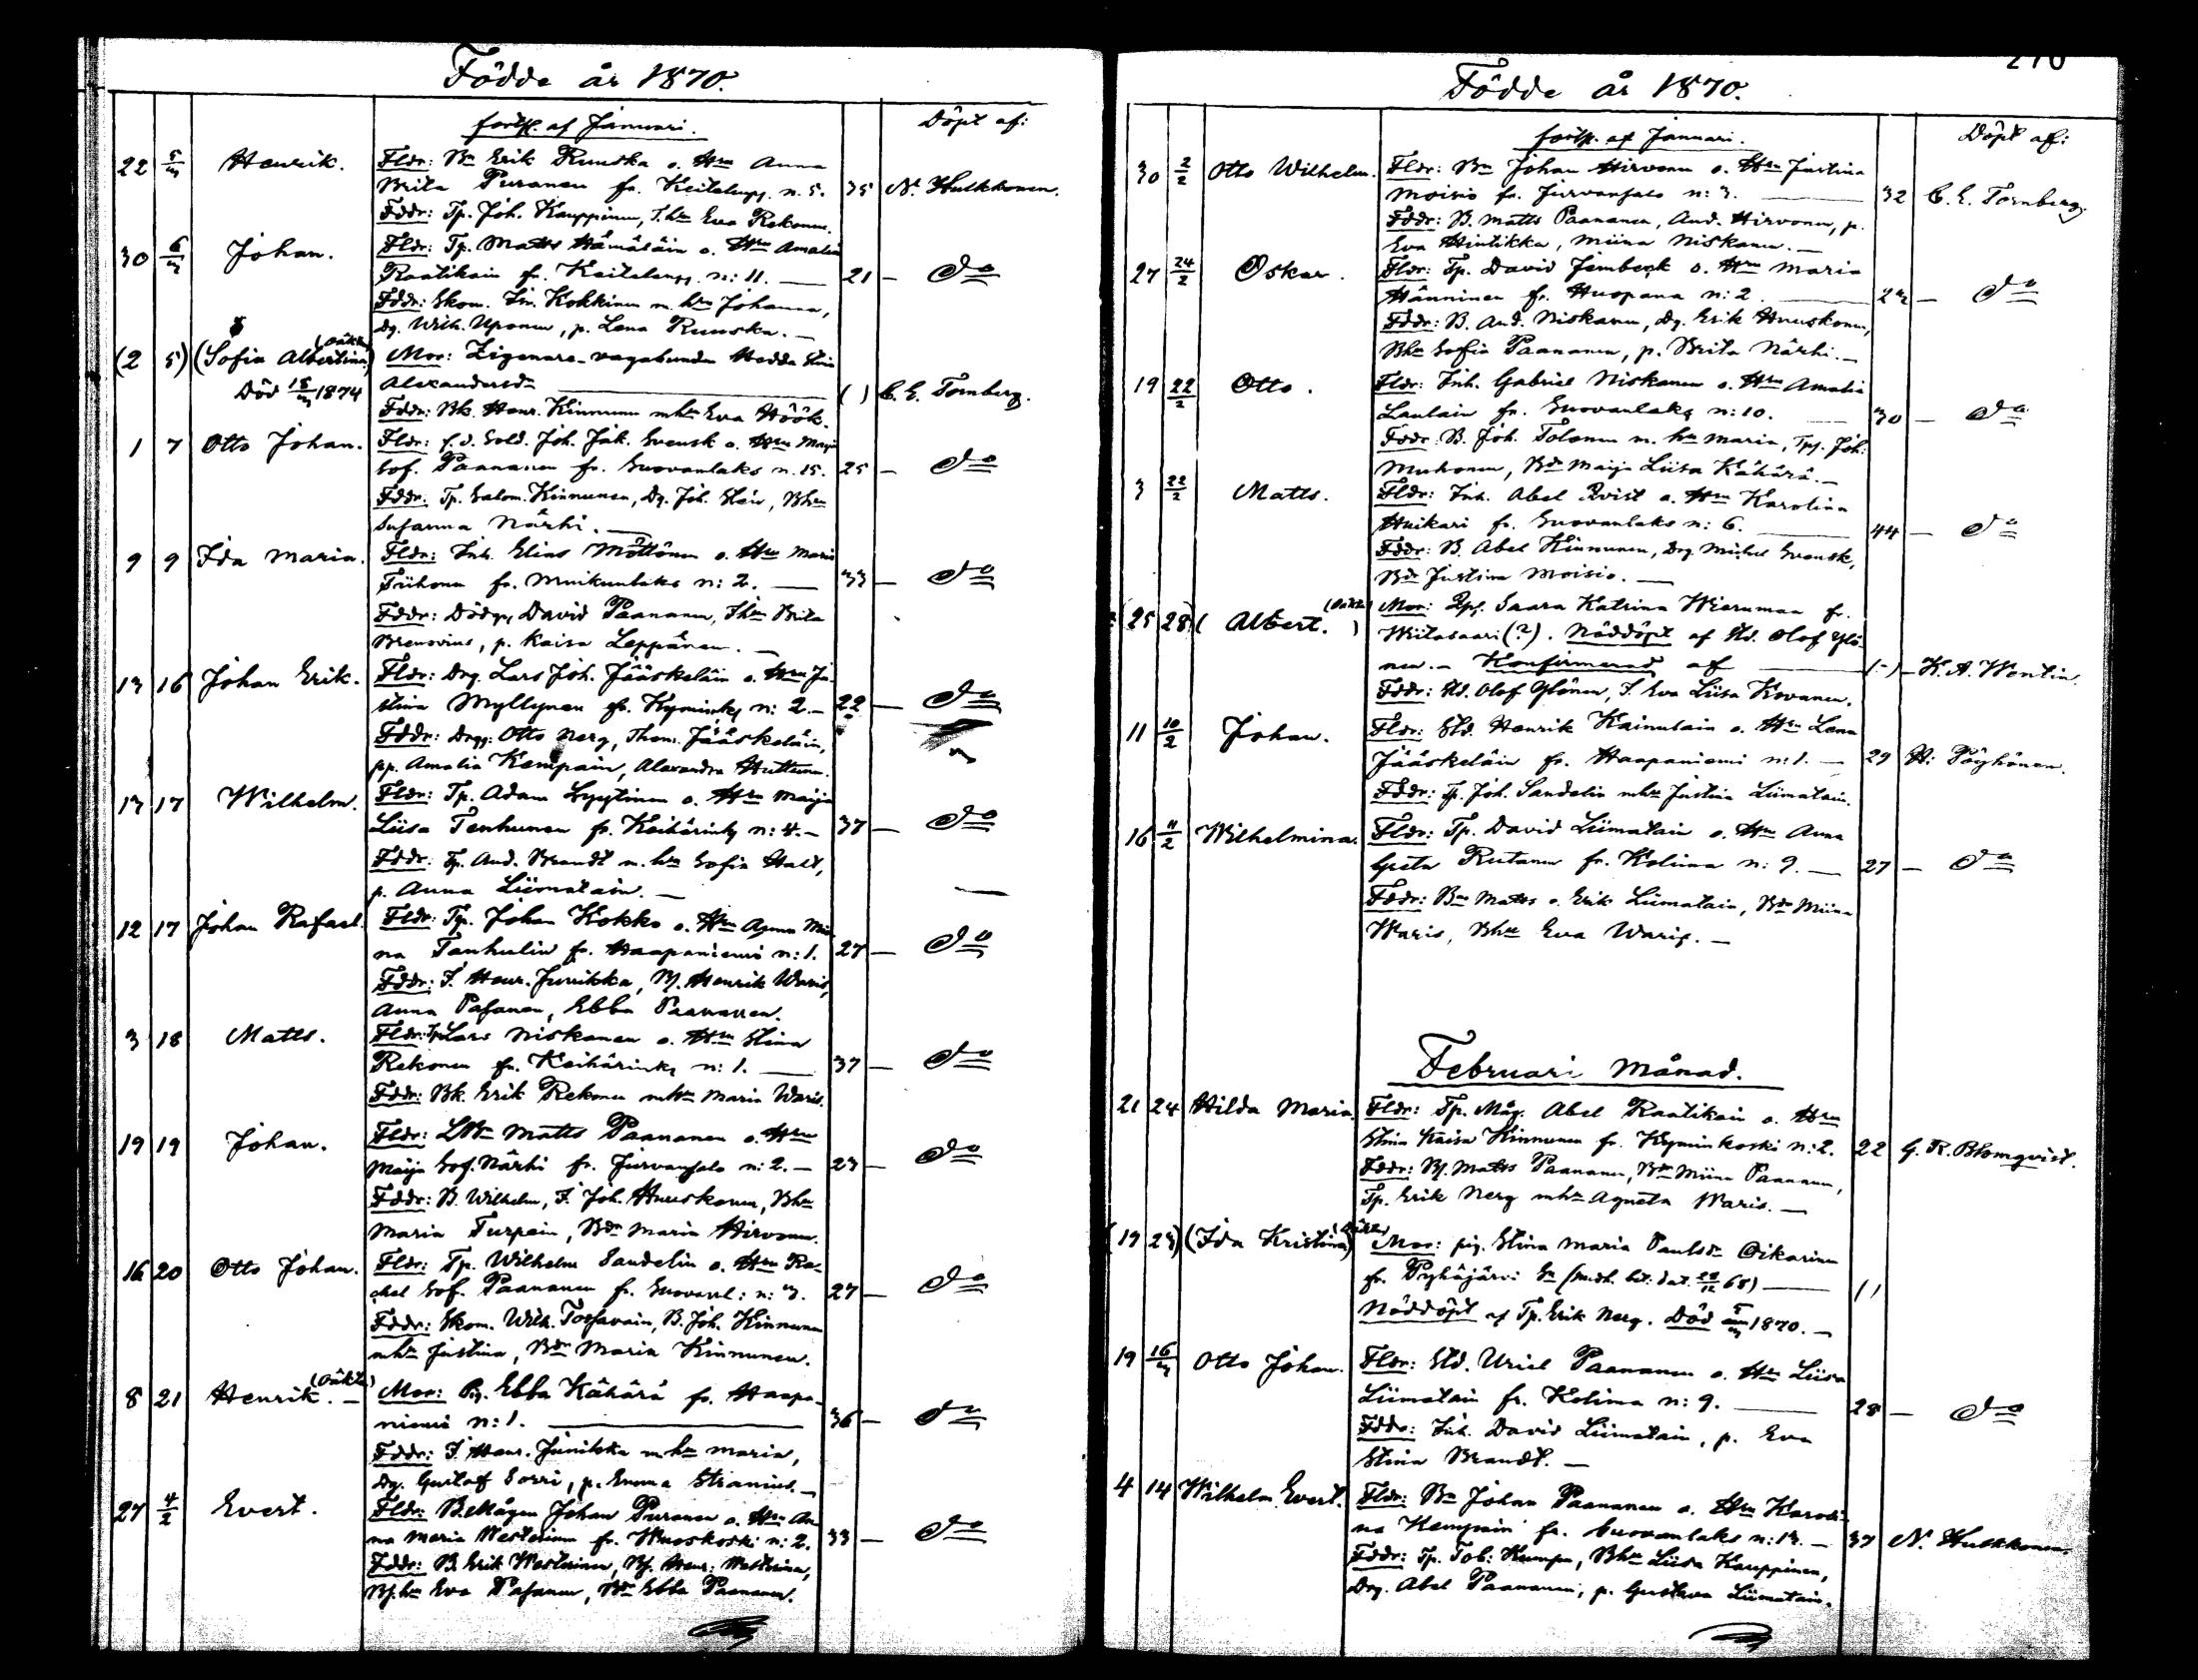 Födde år 1870.
fortss. af Januari. Döpt af:
22 5/3 Henrik. Fldr: Bn Erik Ruuska o. Hru Anna
Brita Puranen fr. Keitelepp. n. 5. 35 N. Hulkkonen.
Fddr: Tp. Joh. Kauppinen, T.hru Eva Rekonen.
30 6/3 Johan. Fldr: Tp. Matts Hämäläin o. Hru Amalia
Raatikain fr. Keitelepp. n: 11. — 21 — do
Fddr: Skom. Kokkinen m. hru Johanna,
Dg. Wilh. Uponen, p. Lena Ruuska. —
(2 5) (Sofia Albertina.) (oäkta) Mor: Zigenare-vagabunden Hedda Stina
Död 15/3 1874 Alexandersdr ( ) C. E. Tornberg.
Fddr: Bk. Henr. Kinnunen mhru Eva Höök.
1 7 Otto Johan. Fldr: f.d. Sold. Joh. Jak. Svensk o. Hru Maija
Sof. Paananen fr. Suovanlaks n. 15. 25 — do
Fddr: Tp. Salom. Kinnunen, Dg. Joh. Stein, Bhru
Susanna Närhi. —
9 9 Ida Maria. Fldr: Inh. Elias Möttönen o. Hru Maria
Tiihonen fr. Muikunlaks n: 2. — 33 — do
Fddr: Dödgr. David Paananen, Thru Brita
Brenovius, p. Kaisa Leppänen. —
13 16 Johan Erik. Fldr: Drg. Lars Joh. Jääskeläin o. Hru Ju-
stina Myllynen fr. Kymink. n: 2. — 22 — do
Fddr: Drgg: Otto Nerg, Thom. Jääskeläin,
pp. Amalia Kempain, Alexandra Huttunen.
13 17 Wilhelm. Fldr: Tp. Adam Lyytinen o. Hru Maija
Liisa Tenhunen fr. Keihärink n: 4. — 37 — do
Fddr: Tp. And. Brandt m. hru Sofia Halt,
p. Anna Liimatain. —
12 17 Johan Rafael. Fldr: Tp. Johan Kokko o. Hru Anna Mii-
na Tanhulin fr. Haapaniemi n: 1. 27 — do
Fddr: I. Henr. Junikka, Bf. Henrik Waris,
Anna Pasanen, Ebba Paananen.
3 18 Matts. Fldr: Tp. Lars Niskanen o. Hru Stina
Rekonen fr. Keihärink n: 1. — 37 — do
Fddr: Bk. Erik Rekonen mhru Maria Waris.
19 19 Johan. Fldr: LBn Matts Paananen o. Hru
Maija Sof. Närhi fr. Jurvansalo n: 2. — 23 — do
Fddr: B. Wilhelm, I. Joh. Huuskonen, Bhru
Maria Turpein, Bdr Maria Hirvonen.
16 20 Otto Johan. Fldr: Tp. Wilhelm Sandelin o. Hru Ra-
chel Sof. Paananen fr. Suovanl: n: 3. 27 — do
Fddr: Skom. Wilh. Tossavain, B. Joh. Kinnunen
mhru Justina, Bdr Maria Kinnunen.
8 21 Henrik. (oäkta) — Mor: Pig. Ebba Kähärä fr. Haapa-
niemi n: 1. 36 — do
Fddr: I. Henr. Junikka m. hru Maria,
Dg. Gustaf Sorri, p. Emma Stranius. —
27 4/2 Evert. Fldr: B.Mågen Johan Puranen o. Hru An-
na Maria Westerinen fr. Wuoskoski n: 2. 33 — do
Fddr: B. Erik Westerinen, Bf. Henr: Westerinen,
Bf.hru Eva Pasanen, Bdr Ebba Paananen.
270
Födde år 1870.
fortss. af Januari. Döpt af:
30 2/2 Otto Wilhelm. Fldr: Bn Johan Hirvonen o. Hru Justina
Moisio fr. Jurvansalo n: 3. — 32 C. E. Tornberg.
Fddr: B. Matts Paananen, And. Hirvonen, p.
Eva Hintikka, Miina Niskanen. —
27 24/2 Oskar. Fldr: Tp. David Jernbeck o. Hru Maria
Hänninen fr. Huopana n: 2. — 23 — do
Fddr: B. And. Niskanen, Dg. Erik Huuskonen,
Bhru Sofia Paananen, p. Brita Närhi. —
19 22/2 Otto. Fldr: Inh. Gabriel Niskanen o. Hru Amalia
Lautain fr. Suovanlaks n: 10. — 30 — do
Fddr. B. Joh. Tolonen m. hru Maria, Tps. Joh.
Muhonen, Bdr Maija Liisa Kähärä. —
3 22/2 Matts. Fldr: Inh. Abel Qvist o. Hru Karolina
Huikari fr. Suovanlaks n: 6. — 44 — do
Fddr: B. Abel Kinnunen, Drg Michel Svensk,
Bdr Justina Moisio. —
(25 28) (Albert.) (oäkta) Mor: Saara Katrina Wiernmaa fr.
Wiitasaari (?). Nöddöpt af Std. Olof Ylö-
nen. — Konfirmerad af (-) — K. A. Wentin.
Fddr: Std. Olof Ylönen, I. Eva Liisa Kovanen.
11 10/2 Johan. Fldr: Std. Henrik Kainulain o. Hru Lena
Jääskeläin fr. Haapaniemi n: 1. — 29 H: Pöyhönen.
Fddr: Tp. Joh. Sandelin mhru Justina Liimatain.
16 11/2 Wilhelmina. Fldr: Tp. David Liimatain o. Hru Anna
Greta Rutanen fr. Kolima n: 9. — 27 — do
Fddr: Bn Matts o. Erik Liimatain, Bdr Miina
Waris, Bhru Eva Waris. —
Februari Månad.
21 24 Hilda Maria. Fldr: Tp. Måg. Abel Raatikain o. Hru
Stina Kaisa Kinnunen fr. Kyminkoski n: 2. 22 G. R. Blomqvist.
Fddr: Bf. Matts Paananen, Bdr Miina Paananen,
Tp. Erik Nerg mhru Agneta Waris. —
(19 23) (Ida Kristina) (oäkta) Mor: pig. Stina Maria Paulsdr Oikarinen
fr. Pyhäjärvi Sn (medh. bet. dat. 28/12 68) — ( )
Nöddöpt af Tp. Erik Nerg. Död 5/3 1870. —
19 16/3 Otto Johan. Fldr: Std. Uriel Paananen o. Hru Liisa
Liimatain fr. Kolima n: 9. — 28 — do
Fddr: Inh. David Liimatain, p. Eva
Stina Brandt. —
4 14 Wilhelm Evert. Fldr: Bn Johan Paananen o. Hru Karoli-
na Kempain fr. Suovanlaks n: 13. — 37 N. Hulkkonen.
Fddr: Tp. Tob: Kumpu, Bhru Liisa Kauppinen,
Drg. Abel Paananen, p. Gustava Liimatain.